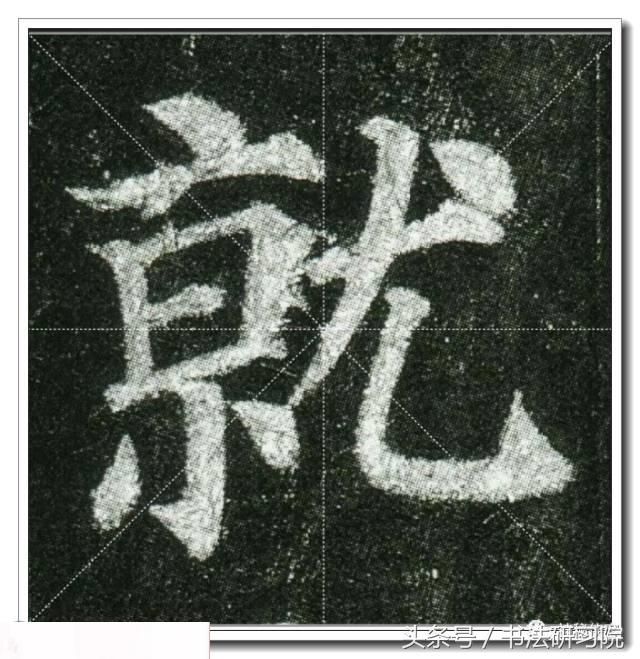 就
头条号 / 书法研习院